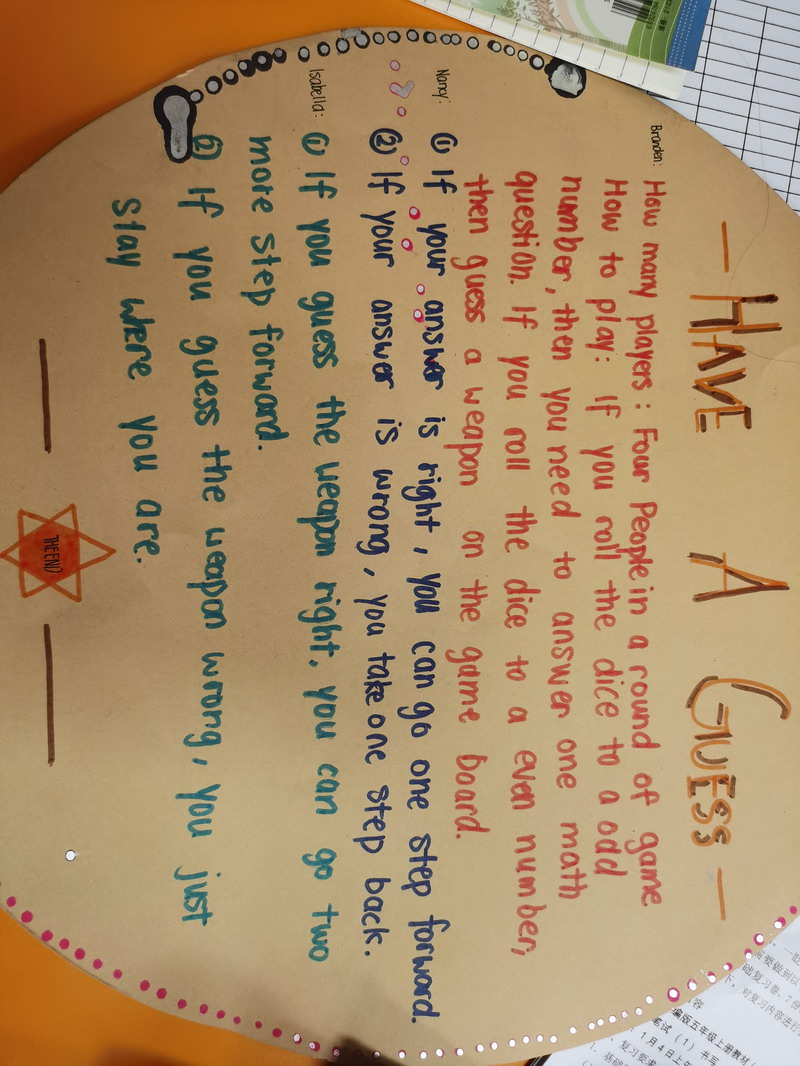 — HAVE A GUESS —
Branden:
How many players: Four People in a round of game
How to play: If you roll the dice to a odd
number, then you need to answer one math
question. If you roll the dice to a even number,
then guess a weapon on the game board.
Nancy:
① If your answer is right, you can go one step forward.
② If your answer is wrong, you take one step back.
Isabella:
① If you guess the weapon right, you can go two
more step forward.
② If you guess the weapon wrong, you just
stay where you are.
THE END
编版五年级上册教材
笔试 (1) 书写
1月4日上午